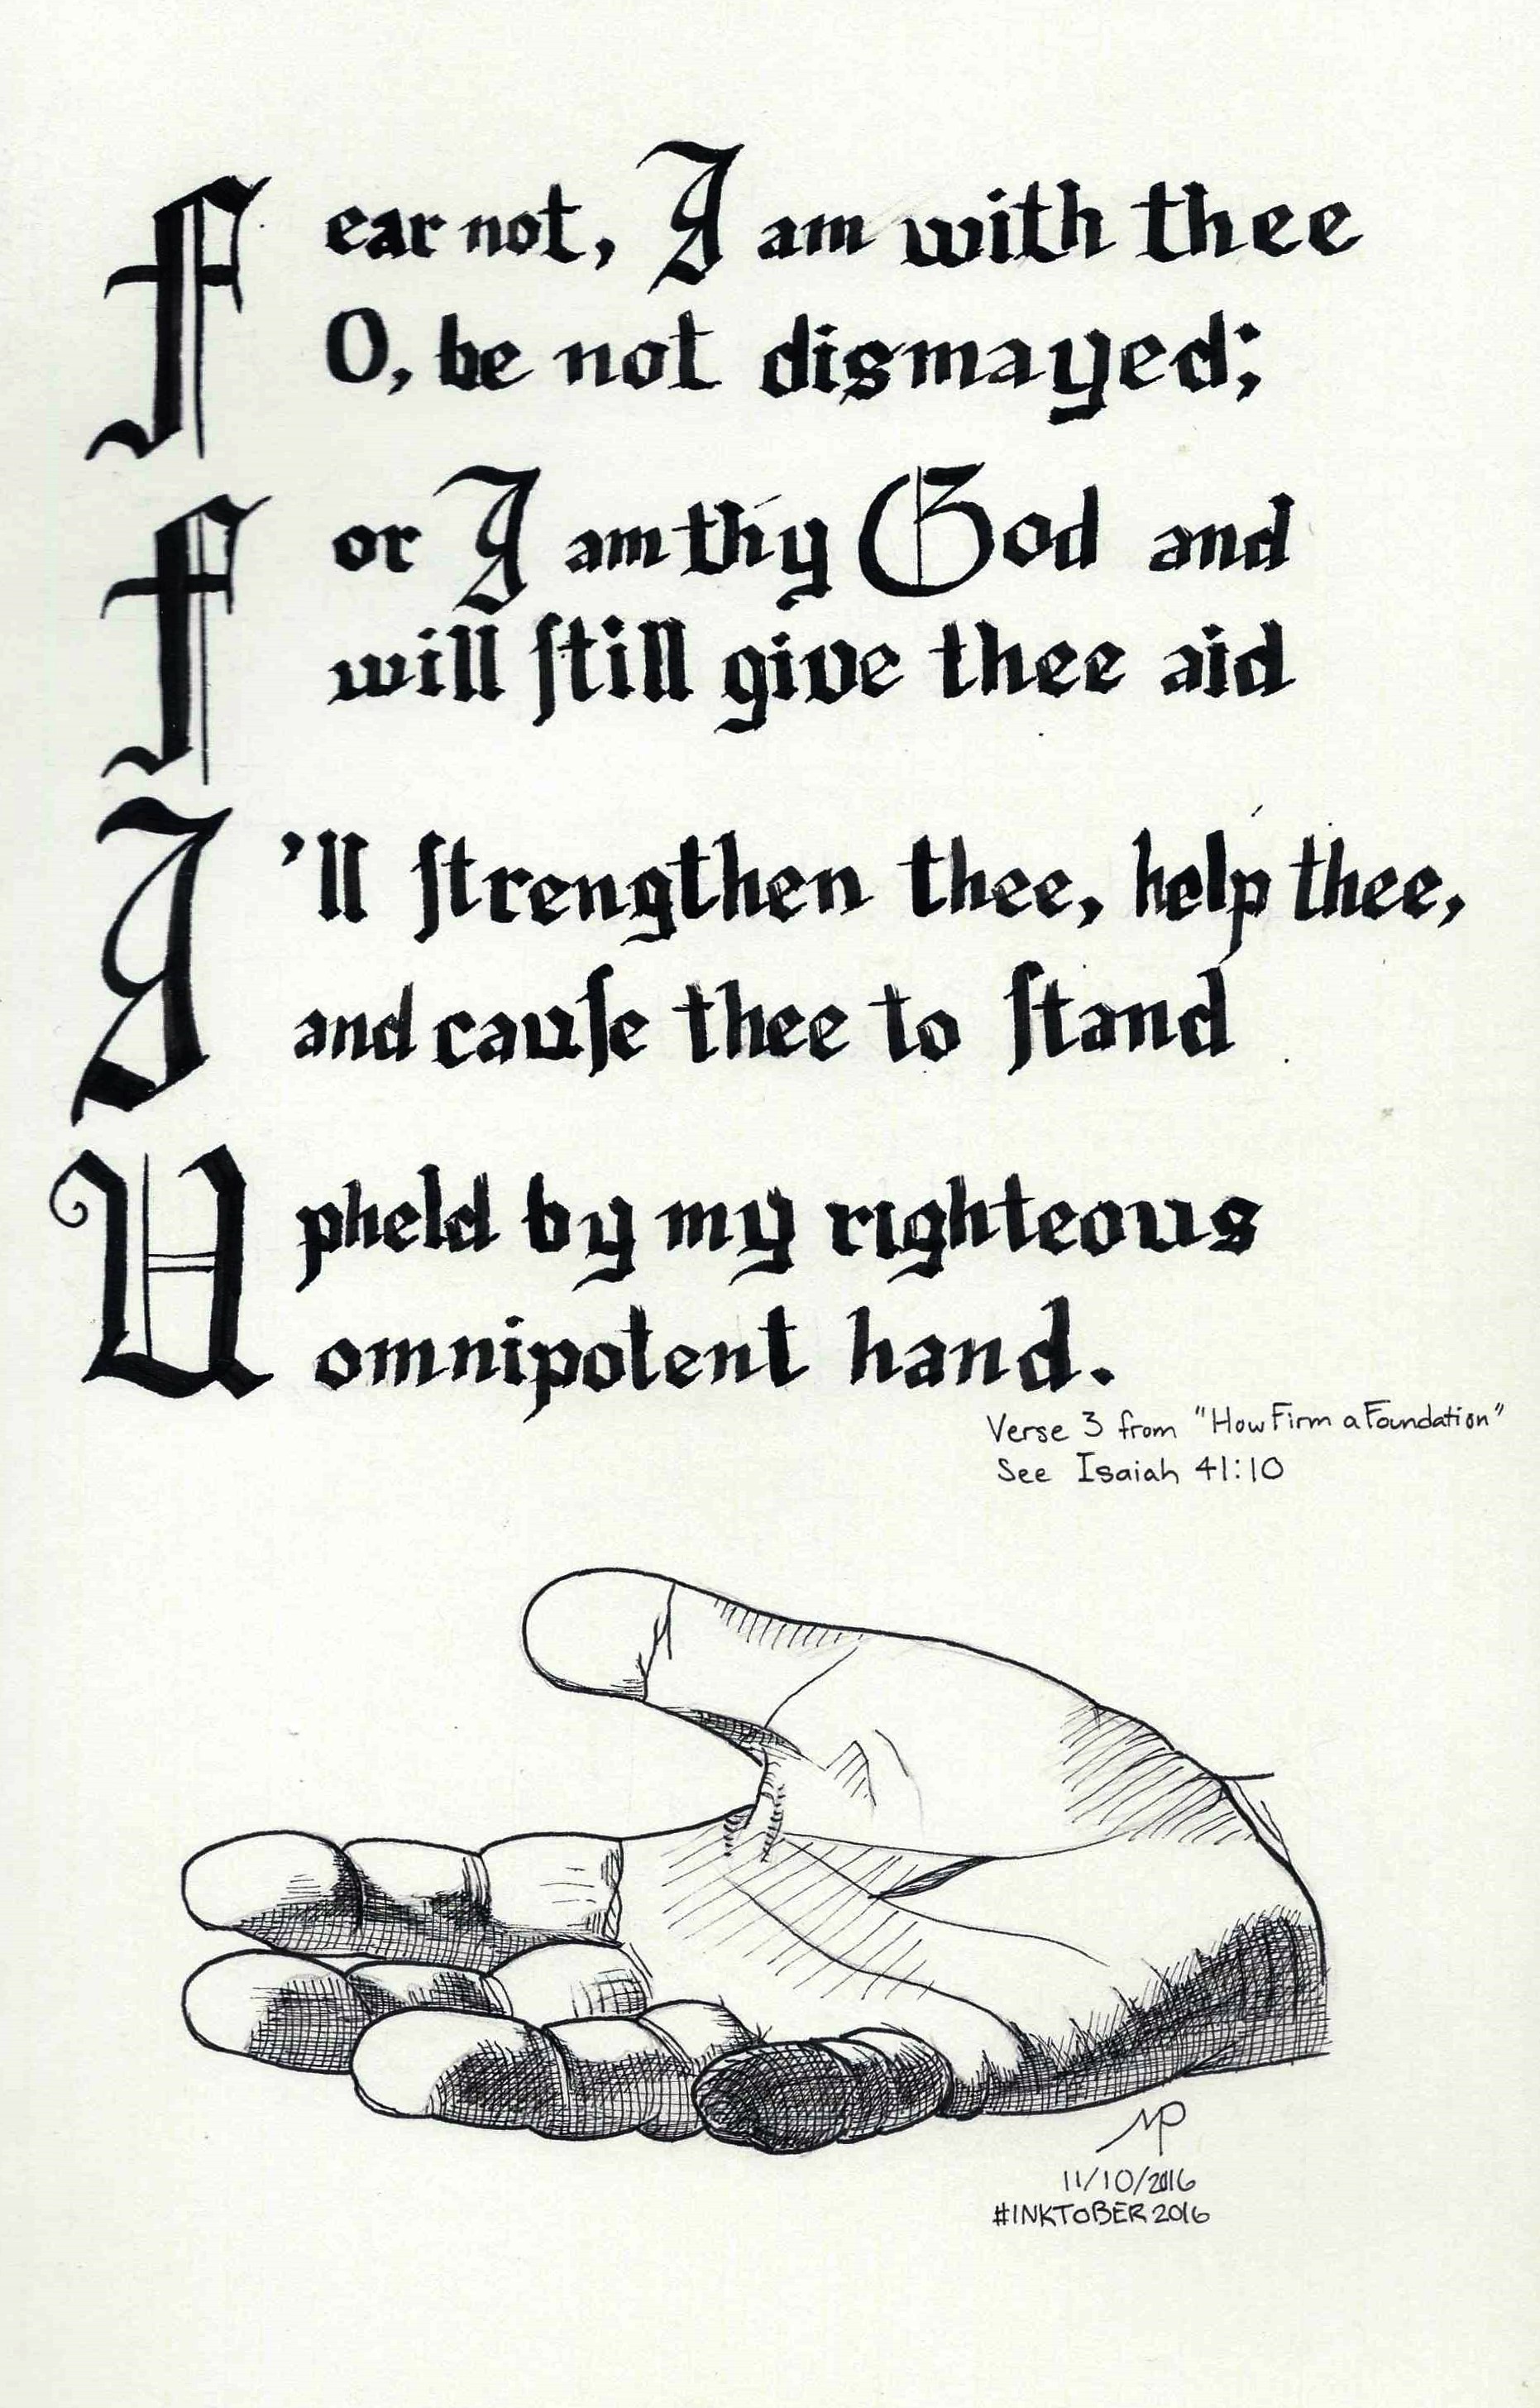 Fear not, I am with thee
O, be not dismayed;
For I am thy God and
will ſtill give thee aid
I'll ſtrengthen thee, help thee,
and cauſe thee to ſtand
Upheld by my righteous
omnipotent hand.
Verse 3 from "How Firm a Foundation"
See Isaiah 41:10
MP
11/10/2016
#INKTOBER2016